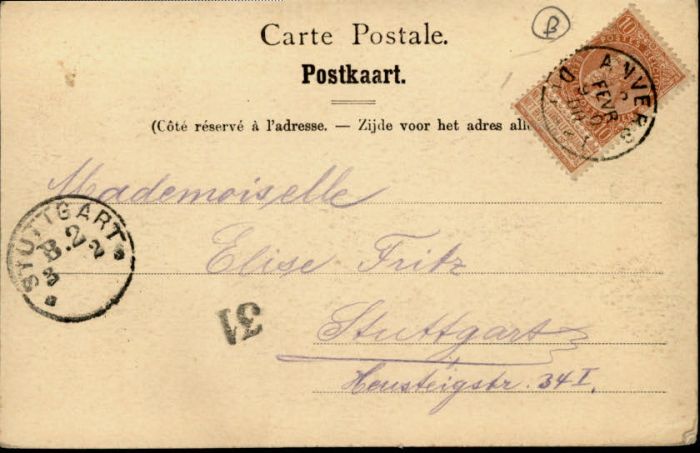 Carte Postale.
Postkaart.
(Côté réservé à l'adresse. — Zijde voor het adres
ANVERS
FEVR
10
STUTTGART
Mademoiselle
Elise Fritz
31
Stuttgart
Heusteigstr. 34 I.